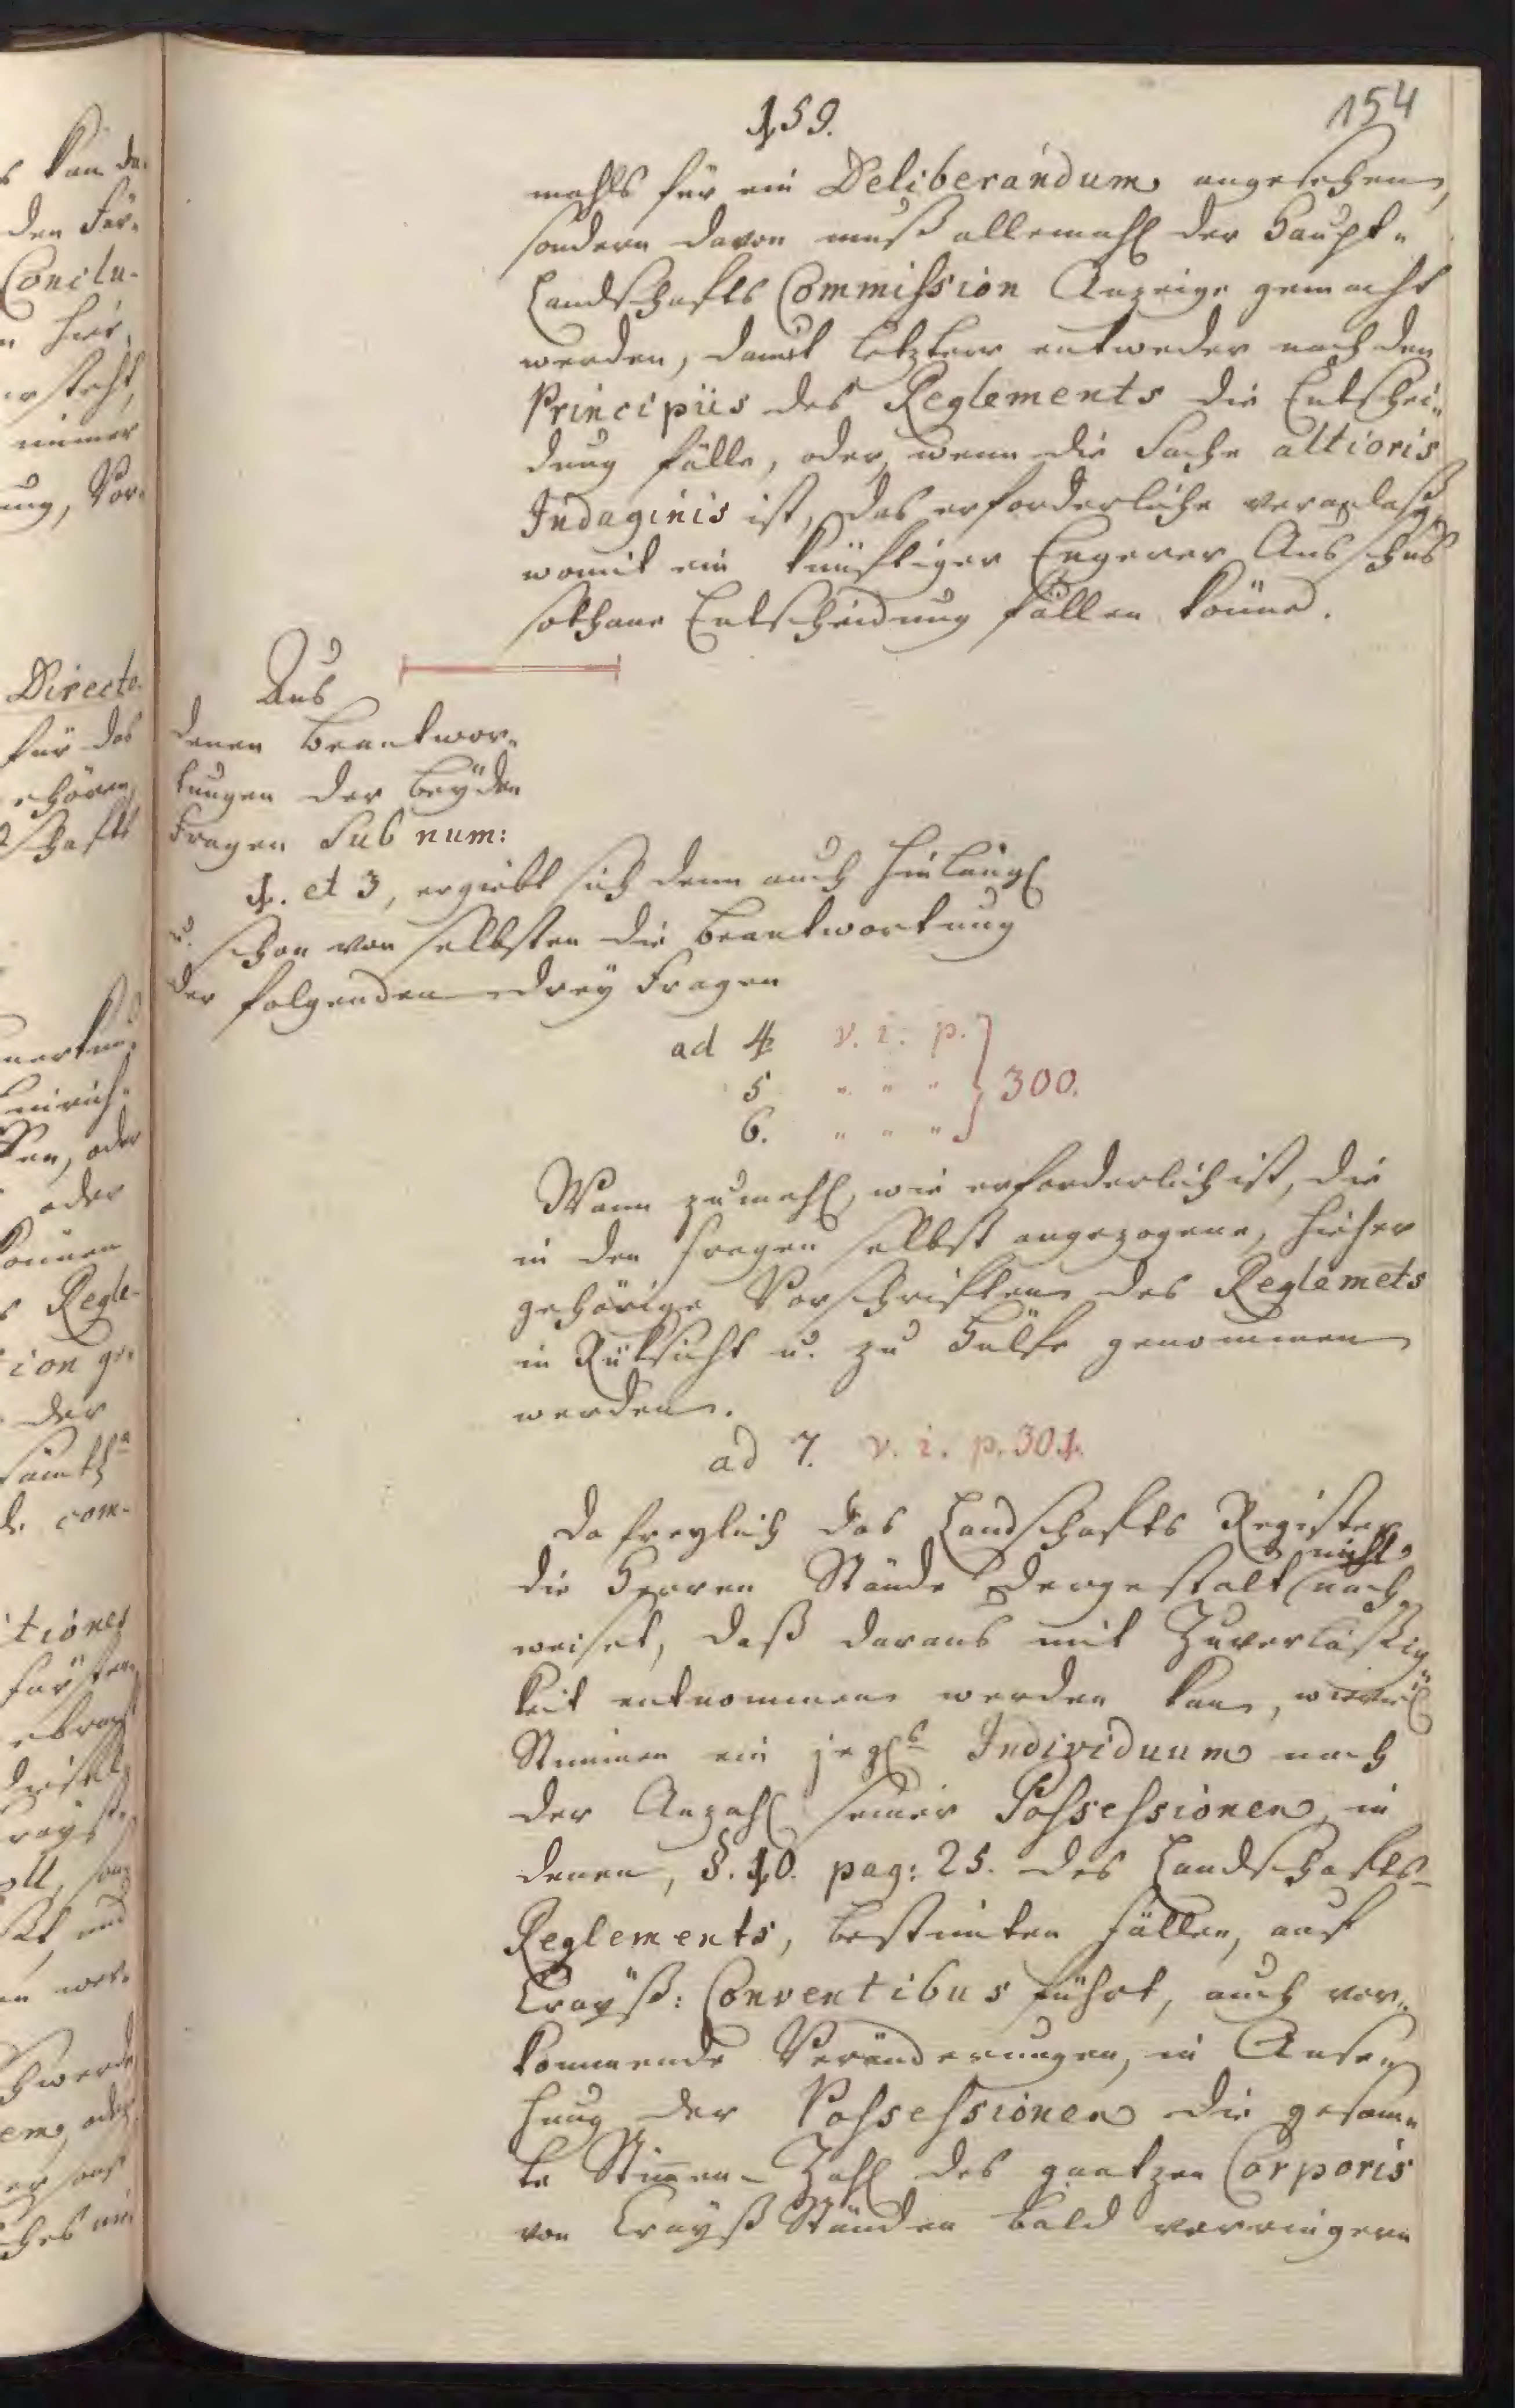 159.
154
mahls für ein Deliberandum angesehen,
sondern davon muß allemahl der Haupt-
Landschafts Commission Anzeige gemacht
werden, damit letztere entweder nach den
Principiis des Reglements die Entschei-
dung fälle, oder, wenn die Sache altioris
Indaginis ist, das erforderliche veranlaße,
womit ein künftiger Engerer Ausschus
sothane Entscheidung fällen könne.
Aus
denen Beantwor-
tungen der beyden
Fragen Sub num:
1. et 3, ergiebt sich denn auch hinlängl
u. schon von selbsten die Beantwortung
der folgenden drey Fragen
ad 4 v. i. p.
5 " " " } 300.
6. " " "
Wann zumahl, wie erforderlich ist, die
in den Fragen selbst angezogene, hieher
gehörige Vorschriften des Reglemets
in Rüksicht u. zu Hülfe genommen
werden.
ad 7. v. i. p. 301.
Da freylich das Landschafts Register
die Herren Stände dergestalt nicht nach-
weiset, daß daraus mit Zuverläßig-
keit entnommen werden kan, wieviel
Stimmen ein jegl. Individuum nach
der Anzahl seiner Possessionen, in
denen, §. 10. pag: 25. des Landschafts-
Reglements, bestimten Fällen, auf
Crayß: Conventibus führt, auch vor-
kommende Veränderungen, in Anse-
hung der Possessionen die gesam-
te Stimen-Zahl des gantzen Corporis
von Crayß Ständen bald verringern